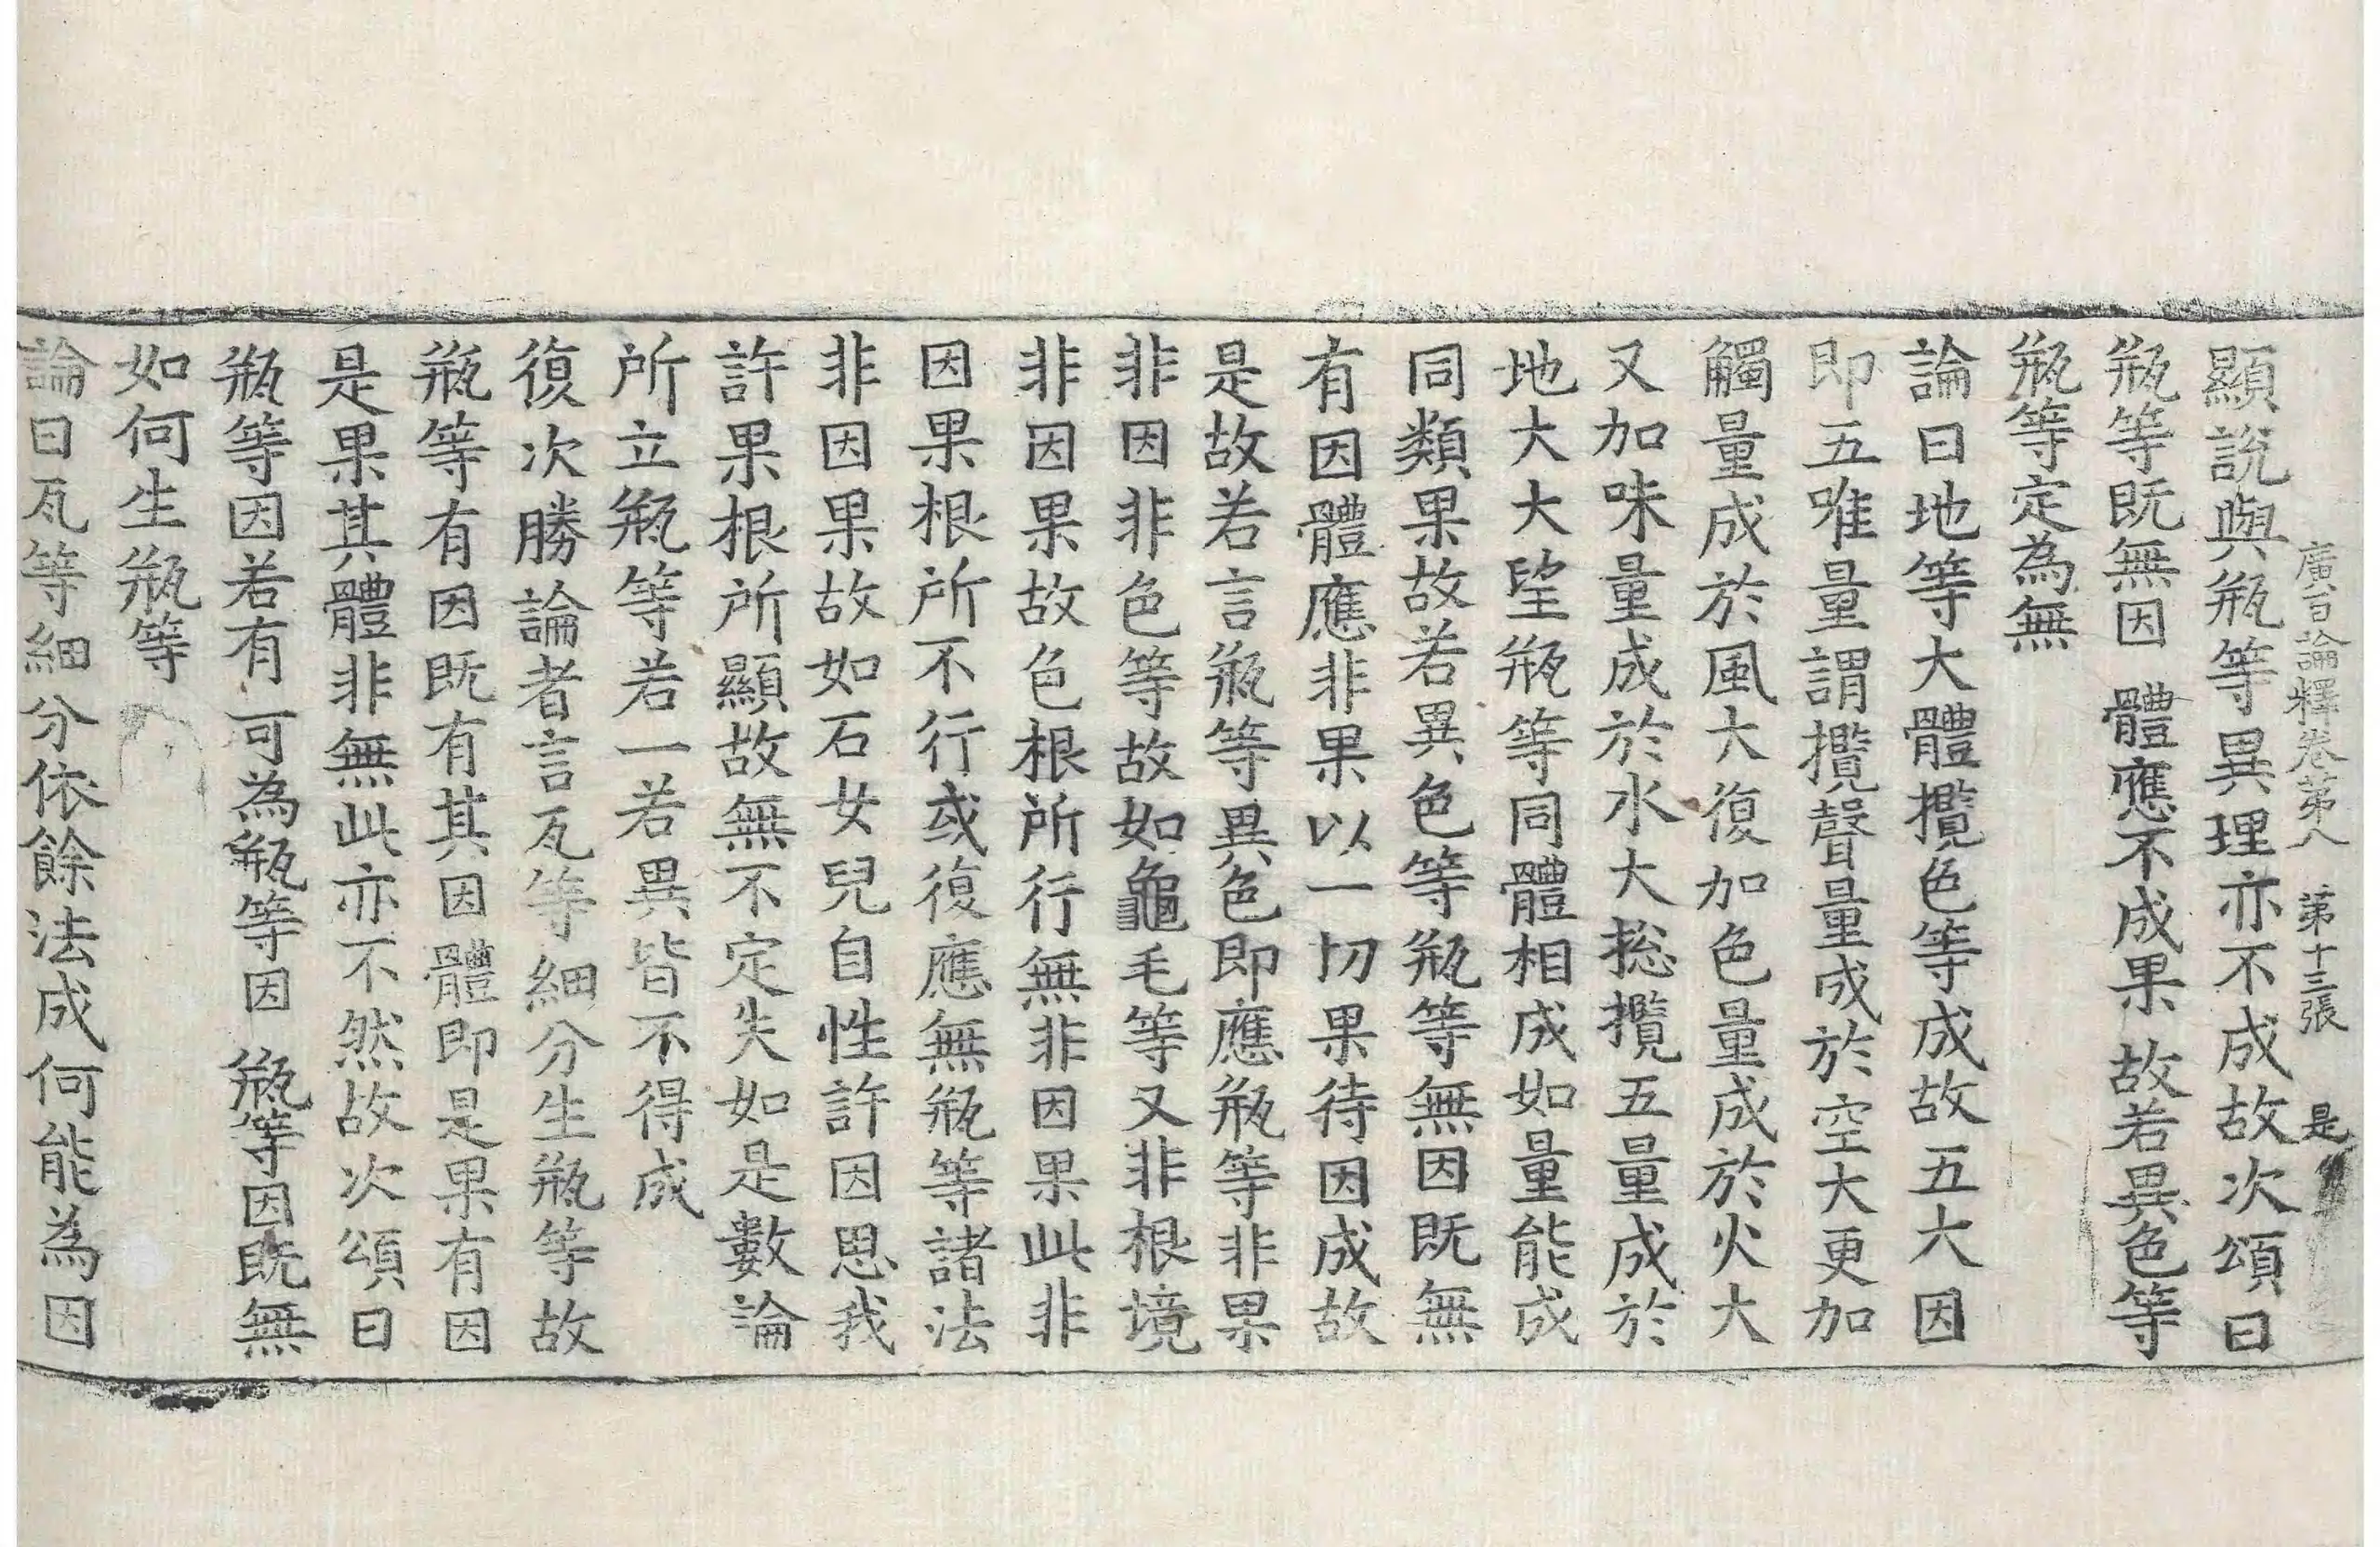 廣百論釋卷第八　第十三張　是
顯說與瓶等異理亦不成故次頌曰
瓶等既無因　體應不成果　故若異色等
瓶等定為無
論曰地等大體攬色等成故五大因
即五唯量謂攬聲量成於空大更加
觸量成於風大復加色量成於火大
又加味量成於水大揔攬五量成於
地大大望瓶等同體相成如量能成
同類果故若異色等瓶等無因既無
有因體應非果以一切果待因成故
是故若言瓶等異色即應瓶等非果
非因非色等故如龜毛等又非根境
非因果故色根所行無非因果此非
因果根所不行或復應無瓶等諸法
非因果故如石女兒自性許因思我
許果根所顯故無不定失如是數論
所立瓶等若一若異皆不得成
復次勝論者言瓦等細分生瓶等故
瓶等有因既有其因體即是果有因
是果其體非無此亦不然故次頌曰
瓶等因若有　可為瓶等因　瓶等因既無
如何生瓶等
論曰瓦等細分依餘法成何能為因